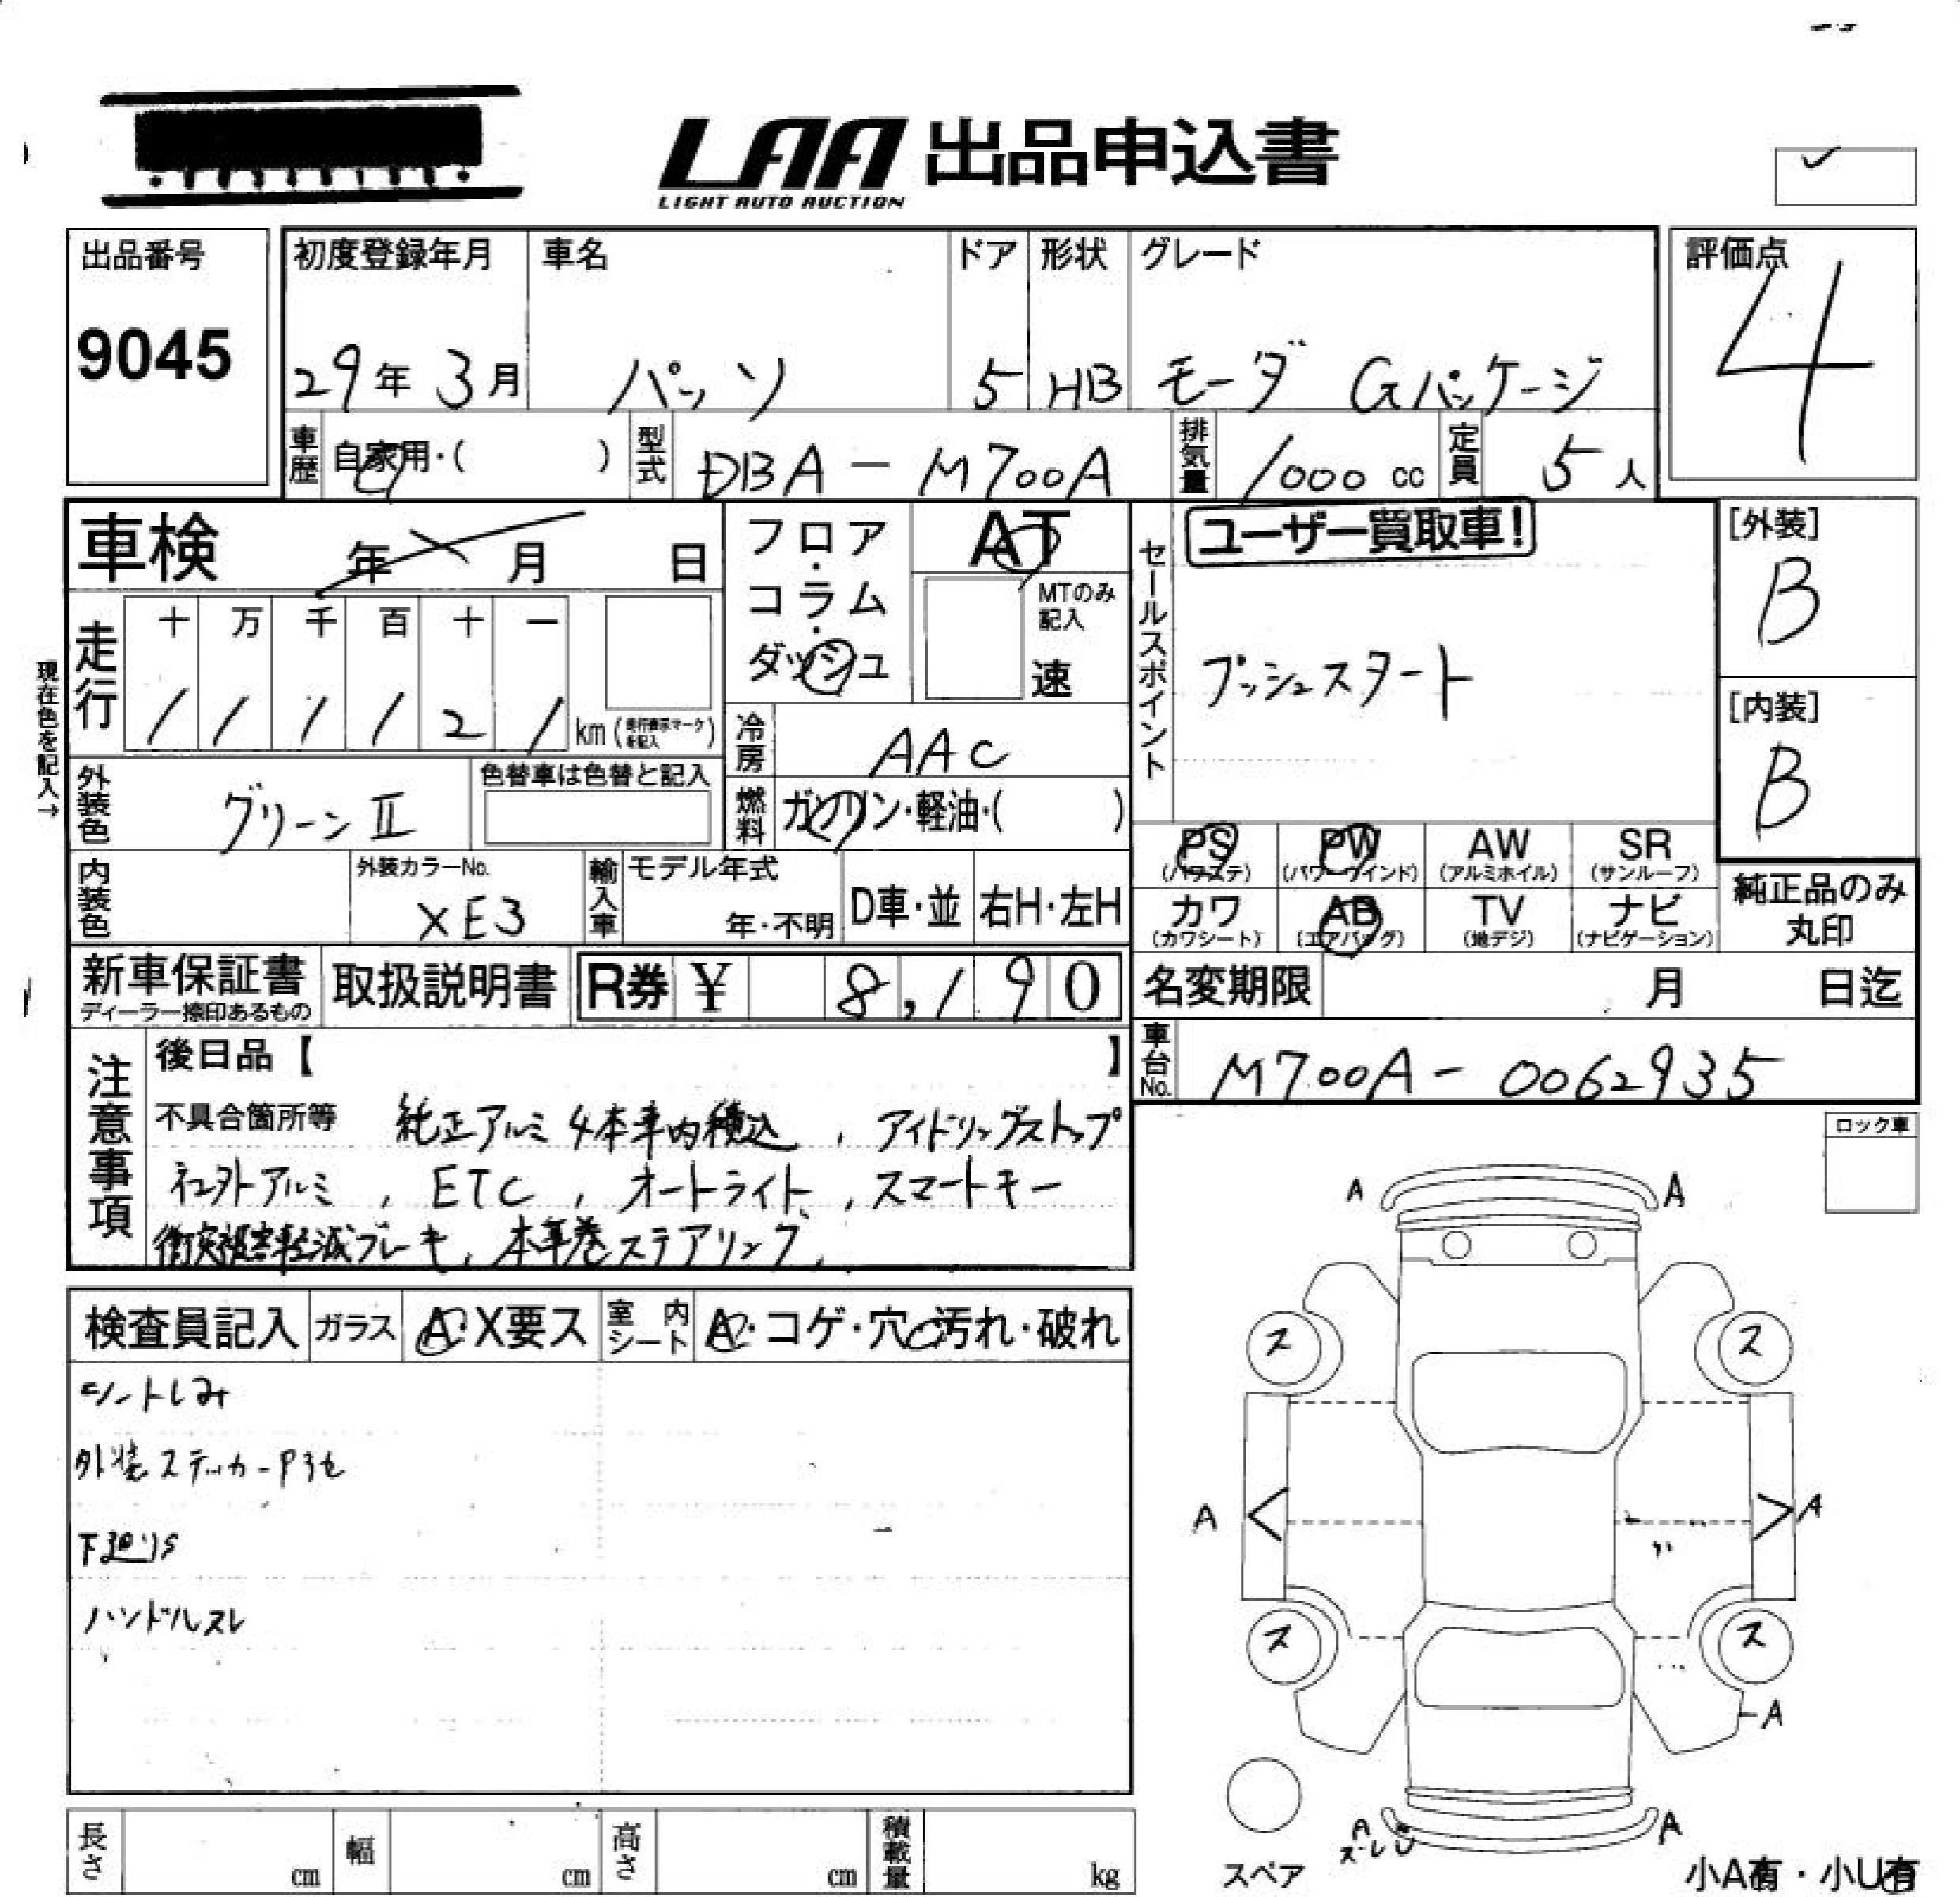 LAA 出品申込書
LIGHT AUTO AUCTION
出品番号
9045
初度登録年月 車名 ドア 形状 グレード
29年 3月 パッソ 5 HB モーダ Gパッケージ
評価点
4
車歴 自家用・( ) 型式 DBA-M700A 排気量 1000 cc 定員 5 人
車検 年 月 日
フロア・コラム・ダッシュ
AT
MTのみ記入
速
セールスポイント
ユーザー買取車!
プッシュスタート
[外装]
B
[内装]
B
現在色を記入→
走行 十 万 千 百 十 一
1 1 1 1 2 1 km (走行表示マークを記入)
冷房 AAC
外装色 グリーンⅡ 色替車は色替と記入
燃料 ガソリン・軽油・( )
PS (パワステ) PW (パワーウインド) AW (アルミホイル) SR (サンルーフ)
カワ (カワシート) AB (エアバッグ) TV (地デジ) ナビ (ナビゲーション)
純正品のみ丸印
内装色 外装カラーNo. XE3 輸入車 モデル年式 年・不明 D車・並 右H・左H
新車保証書 ディーラー捺印あるもの 取扱説明書 R券 ¥ 8,190
名変期限 月 日迄
車台No. M700A-0062935
注意事項
後日品【 】
不具合箇所等 純正アルミ4本車内積込, アイドリングストップ
社外アルミ, ETC, オートライト, スマートキー
衝突被害軽減ブレーキ, 本革巻ステアリング,
ロック車
検査員記入 ガラス A・X要ス 室内シート A・コゲ・穴・汚れ・破れ
シートしみ
外装ステッカーP3セ
下廻りS
ハンドルスレ
A A
ス ス
A A
ス ス
A
A A
スレ
スペア
小A有・小U有
長さ cm 幅 cm 高さ cm 積載量 kg